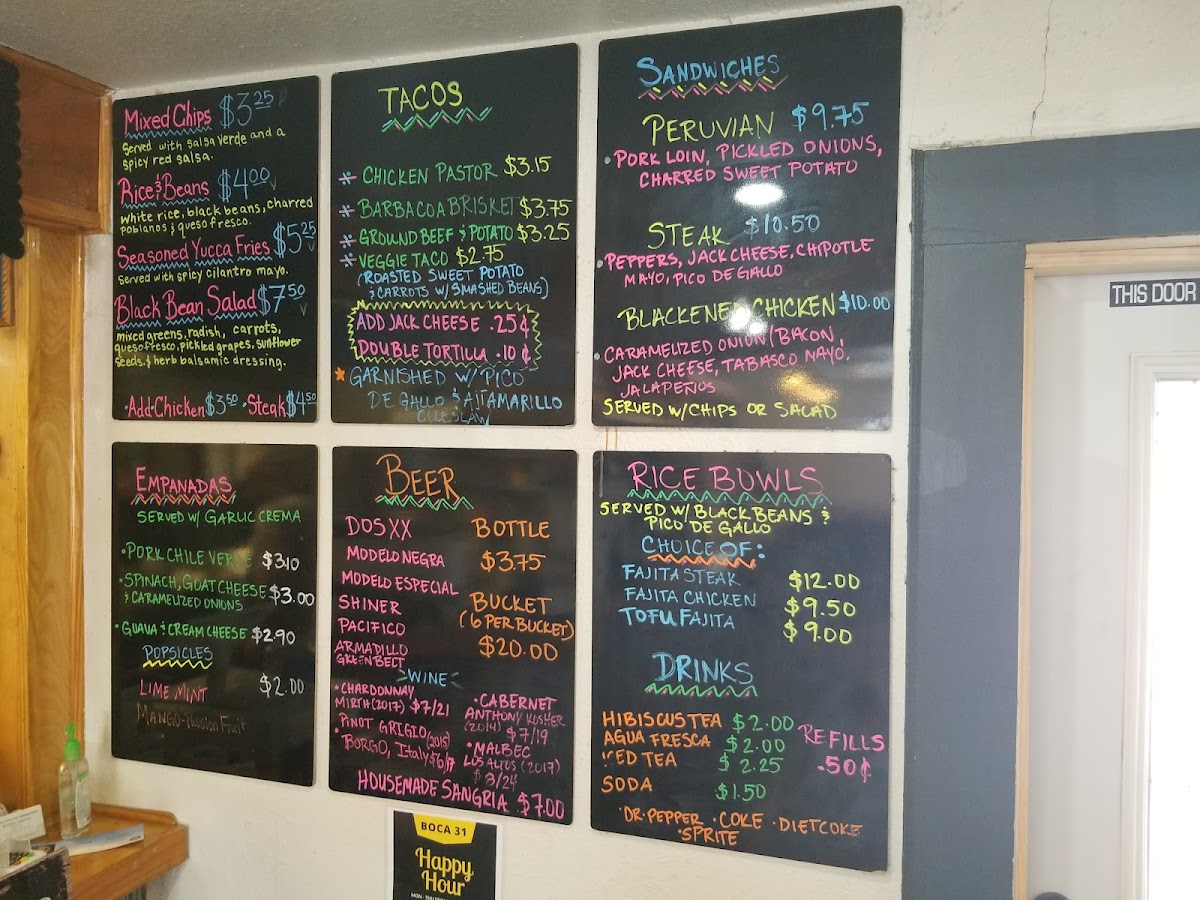 Mixed Chips $3.25
Served with salsa verde and a
spicy red salsa.
Rice & Beans $4.00
white rice, black beans, charred
poblanos & queso fresco.
Seasoned Yucca Fries $5.25
Served with spicy cilantro mayo.
Black Bean Salad $7.50
mixed greens, radish, carrots,
queso fresco, pickled grapes, sunflower
seeds, & herb balsamic dressing.
·Add·Chicken $3.50 ·Steak $4.50
TACOS
* CHICKEN PASTOR $3.15
* BARBACOA BRISKET $3.75
* GROUND BEEF & POTATO $3.25
* VEGGIE TACO $2.75
(ROASTED SWEET POTATO
& CARROTS W/ SMASHED BEANS)
ADD JACK CHEESE .25¢
DOUBLE TORTILLA .10¢
* GARNISHED W/ PICO
DE GALLO & AJI AMARILLO
COLESLAW
SANDWICHES
PERUVIAN $9.75
• PORK LOIN, PICKLED ONIONS,
CHARRED SWEET POTATO
STEAK $10.50
• PEPPERS, JACK CHEESE, CHIPOTLE
MAYO, PICO DE GALLO
BLACKENED CHICKEN $10.00
• CARAMELIZED ONION/BACON,
JACK CHEESE, TABASCO MAYO,
JALAPEÑOS
SERVED W/CHIPS OR SALAD
EMPANADAS
SERVED W/ GARLIC CREMA
• PORK CHILE VERDE $3.10
• SPINACH, GOAT CHEESE
& CARAMELIZED ONIONS $3.00
• GUAVA & CREAM CHEESE $2.90
POPSICLES
LIME MINT $2.00
MANGO-Passion Fruit
BEER
DOS XX
MODELO NEGRA
MODELO ESPECIAL
SHINER
PACIFICO
ARMADILLO
GREENBELT
BOTTLE
$3.75
BUCKET
(6 PER BUCKET)
$20.00
WINE
• CHARDONNAY
MIRTH (2017) $7/21
• PINOT GRIGIO (2015)
BORGO, Italy $6/17
• CABERNET
ANTHONY KOSHER
(2014) $7/19
• MALBEC
LOS ALTOS (2017)
$8/24
HOUSEMADE SANGRIA $7.00
RICE BOWLS
SERVED W/ BLACK BEANS &
PICO DE GALLO
CHOICE OF:
FAJITA STEAK $12.00
FAJITA CHICKEN $9.50
TOFU FAJITA $9.00
DRINKS
HIBISCUS TEA $2.00
AGUA FRESCA $2.00
ICED TEA $2.25
SODA $1.50
REFILLS
.50¢
·DR. PEPPER ·COKE ·DIET COKE
·SPRITE
BOCA 31
Happy
Hour
THIS DOOR